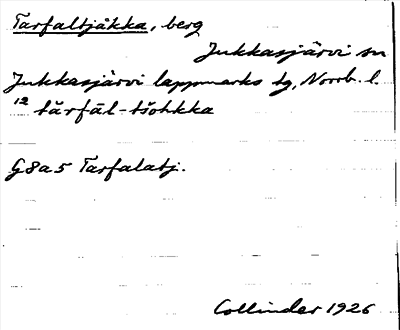 Tarfaltjåkka, berg
Jukkasjärvi sn
Jukkasjärvi lappmarks tg, Norrb. l.
12 tàrfāl-tšohkka
G8a5 Tarfalatj.
Collinder 1926